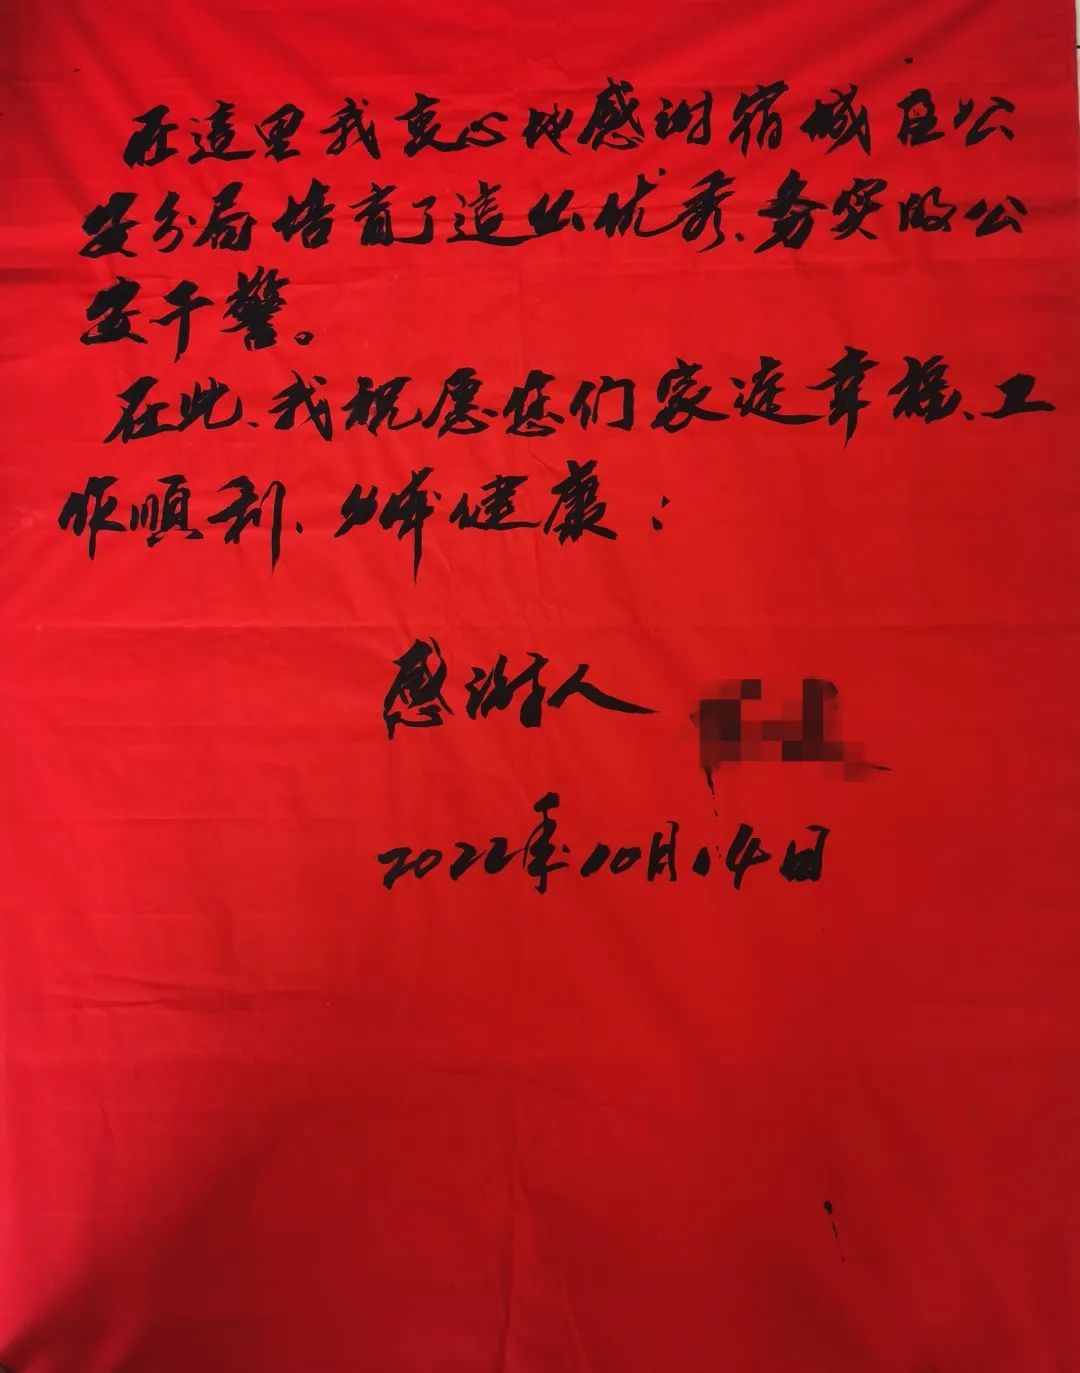 在這里我衷心地感谢宿城区公
安分局培育了這么优秀、务实的公
安干警。
在此、我祝愿您们家庭幸福、工
作順利、身体健康：
感谢人
2022年10月14日